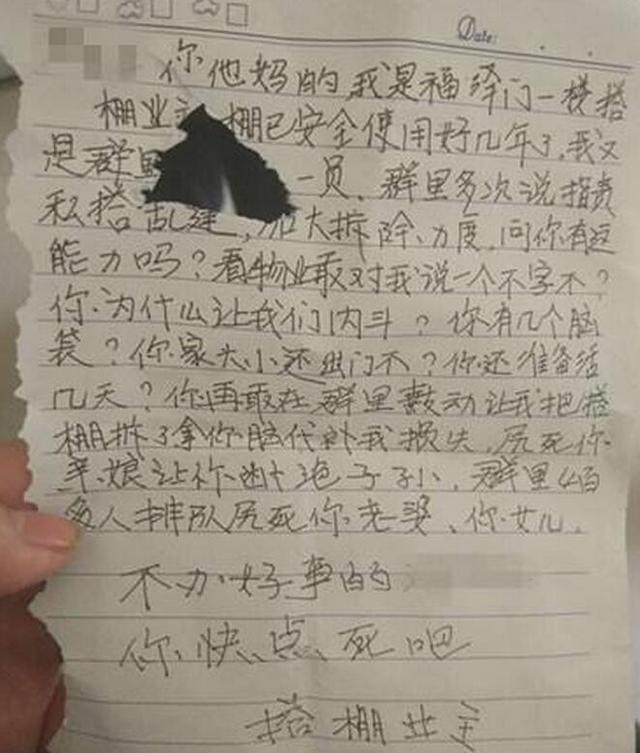 Date:
你他妈的,我是福绎门一楼搭
棚业主 棚已安全使用好几年了,我又
是群里 一员、群里多次说指责
私搭乱建,加大拆除力度,问你有这
能力吗?看物业敢对我说一个不字不?
你为什么让我们内斗?你有几个脑
袋?你家大小还出门不?你还准备活
几天?你再敢在群里鼓动让我把搭
棚拆了拿你脑代补我损失,尻死你
娘让你断 子 孙、群里 百
多人排队尻死你老婆、你女儿。
不办好事的
你快点死吧
搭棚业主